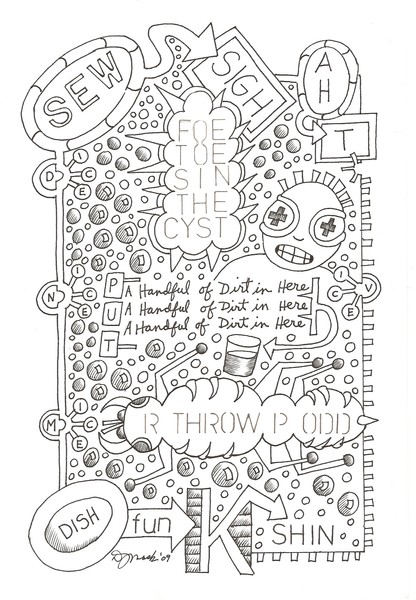 SEW
SGH
AH
T
FOE
TOE
SIN
THE
CYST
DICE
NICE
VICE
MICE
PUT
A Handful of Dirt in Here
A Handful of Dirt in Here
A Handful of Dirt in Here
R THROW P ODD
DISH
fun
K
SHIN